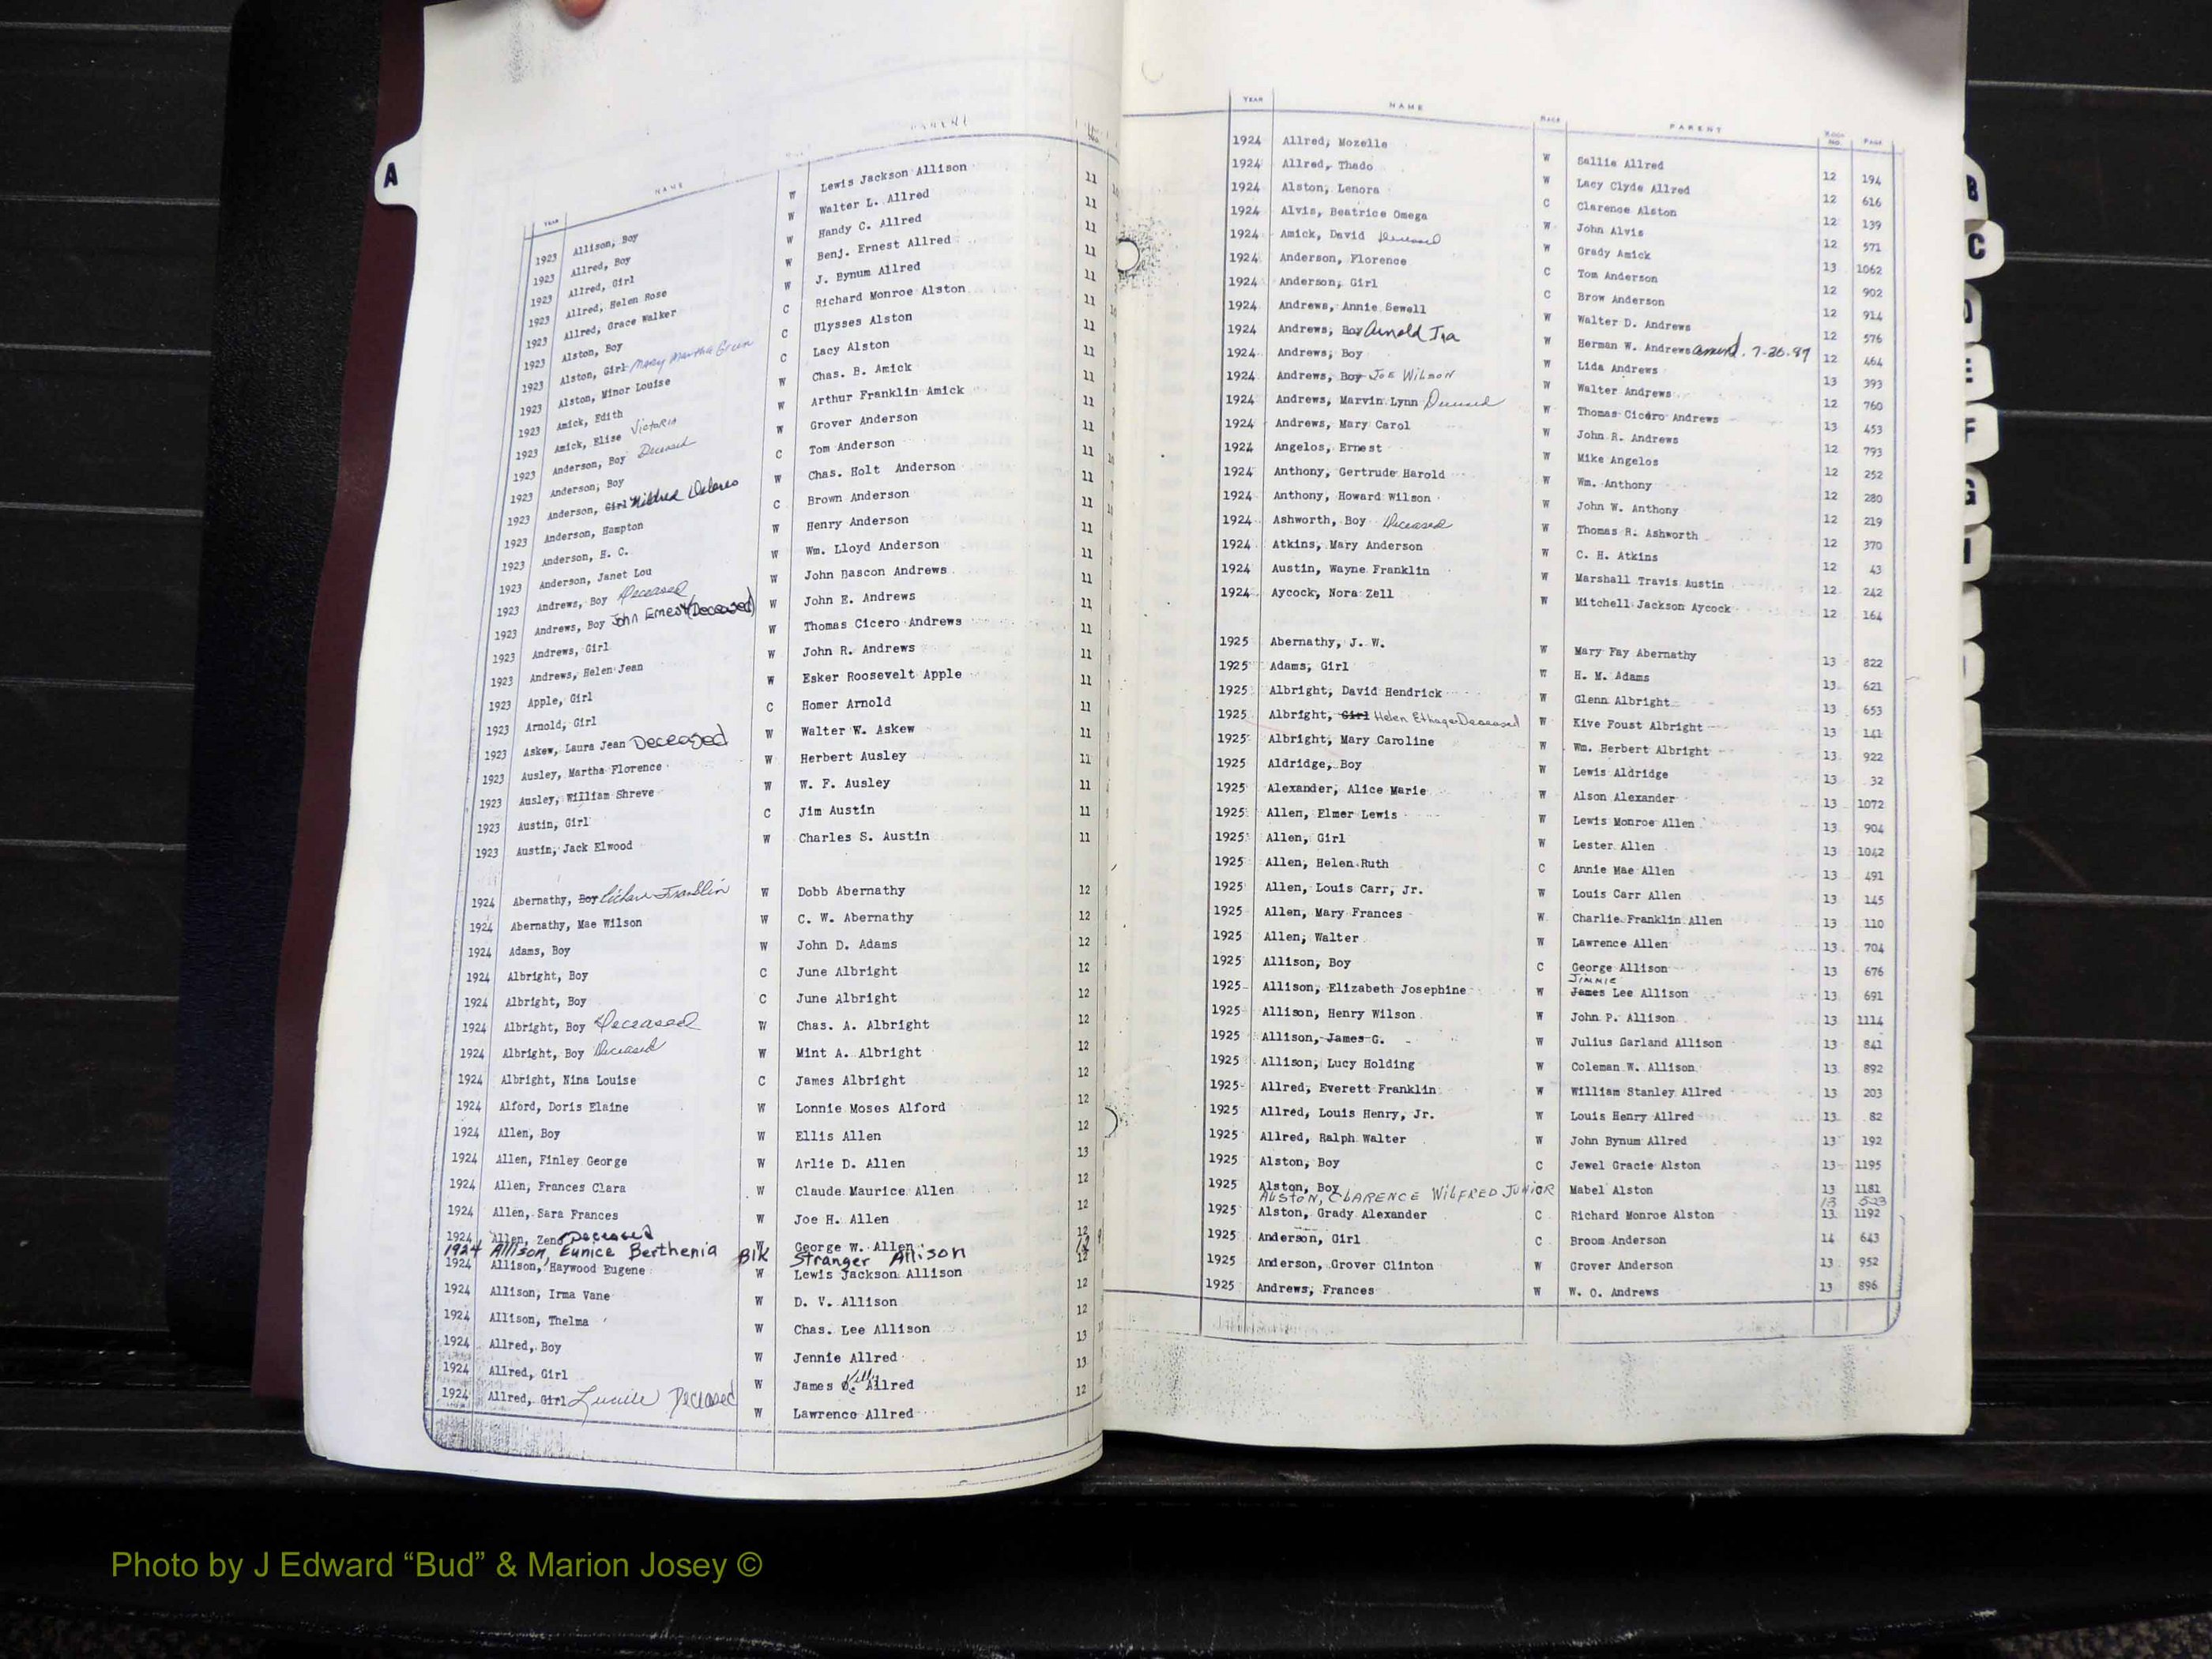 A
YEAR NAME PARENT
1923 Allison, Boy W Lewis Jackson Allison 11
1923 Allred, Boy W Walter L. Allred 11
1923 Allred, Girl W Handy C. Allred 11
1923 Allred, Helen Rose W Benj. Ernest Allred 11
1923 Allred, Grace Walker W J. Bynum Allred 11
1923 Alston, Boy C Richard Monroe Alston 11
1923 Alston, Girl Mary Martha Green C Ulysses Alston 11
1923 Alston, Minor Louise C Lacy Alston 11
1923 Amick, Edith W Chas. B. Amick 11
1923 Amick, Elise Victoria W Arthur Franklin Amick 11
1923 Anderson, Boy Deceased W Grover Anderson 11
1923 Anderson, Boy C Tom Anderson 11
1923 Anderson, Girl Mildred Delores W Chas. Holt Anderson 11
1923 Anderson, Hampton C Brown Anderson 11
1923 Anderson, H. C. W Henry Anderson 11
1923 Anderson, Janet Lou W Wm. Lloyd Anderson 11
1923 Andrews, Boy Deceased W John Bascon Andrews 11
1923 Andrews, Boy John Ernest (Deceased) W John E. Andrews 11
1923 Andrews, Girl W Thomas Cicero Andrews 11
1923 Andrews, Helen Jean W John R. Andrews 11
1923 Apple, Girl W Esker Roosevelt Apple 11
1923 Arnold, Girl C Homer Arnold 11
1923 Askew, Laura Jean Deceased W Walter W. Askew 11
1923 Ausley, Martha Florence W Herbert Ausley 11
1923 Ausley, William Shreve W W. F. Ausley 11
1923 Austin, Girl C Jim Austin 11
1923 Austin, Jack Elwood W Charles S. Austin 11
1924 Abernathy, Boy Franklin W Dobb Abernathy 12
1924 Abernathy, Mae Wilson W C. W. Abernathy 12
1924 Adams, Boy W John D. Adams 12
1924 Albright, Boy C June Albright 12
1924 Albright, Boy C June Albright 12
1924 Albright, Boy Deceased W Chas. A. Albright 12
1924 Albright, Boy Deceased W Mint A. Albright 12
1924 Albright, Nina Louise C James Albright 12
1924 Alford, Doris Elaine W Lonnie Moses Alford 12
1924 Allen, Boy W Ellis Allen 12
1924 Allen, Finley George W Arlie D. Allen 13
1924 Allen, Frances Clara W Claude Maurice Allen 12
1924 Allen, Sara Frances W Joe H. Allen 12
1924 Allen, Zeno Deceased W George W. Allen 12
1924 Allison, Eunice Berthenia Blk Stranger Allison 12
1924 Allison, Haywood Eugene W Lewis Jackson Allison 12
1924 Allison, Irma Vane W D. V. Allison 12
1924 Allison, Thelma W Chas. Lee Allison 12
1924 Allred, Boy W Jennie Allred 13
1924 Allred, Girl W James Kelly Allred 13
1924 Allred, Girl Lucille Deceased W Lawrence Allred 12
YEAR NAME RACE PARENT BOOK NO. PAGE
1924 Allred, Mozelle W Sallie Allred 12 194
1924 Allred, Thado W Lacy Clyde Allred 12 616
1924 Alston, Lenora C Clarence Alston 12 139
1924 Alvis, Beatrice Omega W John Alvis 12 571
1924 Amick, David Deceased W Grady Amick 13 1062
1924 Anderson, Florence C Tom Anderson 12 902
1924 Anderson, Girl C Brow Anderson 12 914
1924 Andrews, Annie Sewell W Walter D. Andrews 12 576
1924 Andrews, Boy Arnold Ira W Herman W. Andrews amend. 7-20-87 12 464
1924 Andrews, Boy W Lida Andrews 13 393
1924 Andrews, Boy Joe Wilson W Walter Andrews 12 760
1924 Andrews, Marvin Lynn Deceased W Thomas Cicero Andrews 13 453
1924 Andrews, Mary Carol W John R. Andrews 12 793
1924 Angelos, Ernest W Mike Angelos 12 252
1924 Anthony, Gertrude Harold W Wm. Anthony 12 280
1924 Anthony, Howard Wilson W John W. Anthony 12 219
1924 Ashworth, Boy Deceased W Thomas R. Ashworth 12 370
1924 Atkins, Mary Anderson W C. H. Atkins 12 43
1924 Austin, Wayne Franklin W Marshall Travis Austin 12 242
1924 Aycock, Nora Zell W Mitchell Jackson Aycock 12 164
1925 Abernathy, J. W. W Mary Fay Abernathy 13 822
1925 Adams, Girl W H. M. Adams 13 621
1925 Albright, David Hendrick W Glenn Albright 13 653
1925 Albright, Girl Helen Deceased W Kive Foust Albright 13 141
1925 Albright, Mary Caroline W Wm. Herbert Albright 13 922
1925 Aldridge, Boy W Lewis Aldridge 13 32
1925 Alexander, Alice Marie W Alson Alexander 13 1072
1925 Allen, Elmer Lewis W Lewis Monroe Allen 13 904
1925 Allen, Girl W Lester Allen 13 1042
1925 Allen, Helen Ruth C Annie Mae Allen 13 491
1925 Allen, Louis Carr, Jr. W Louis Carr Allen 13 145
1925 Allen, Mary Frances W Charlie Franklin Allen 13 110
1925 Allen, Walter W Lawrence Allen 13 704
1925 Allison, Boy C George Allison 13 676
Jimmie
1925 Allison, Elizabeth Josephine W James Lee Allison 13 691
1925 Allison, Henry Wilson W John P. Allison 13 1114
1925 Allison, James G. W Julius Garland Allison 13 841
1925 Allison, Lucy Holding W Coleman W. Allison 13 892
1925 Allred, Everett Franklin W William Stanley Allred 13 203
1925 Allred, Louis Henry, Jr. W Louis Henry Allred 13 82
1925 Allred, Ralph Walter W John Bynum Allred 13 192
1925 Alston, Boy C Jewel Gracie Alston 13 1195
1925 Alston, Boy C Mabel Alston 13 1181
ALSTON, CLARENCE WILFRED JUNIOR 13 523
1925 Alston, Grady Alexander C Richard Monroe Alston 13 1192
1925 Anderson, Girl C Broom Anderson 14 643
1925 Anderson, Grover Clinton W Grover Anderson 13 952
1925 Andrews, Frances W W. O. Andrews 13 896
B
C
F
G
Photo by J Edward “Bud” & Marion Josey ©